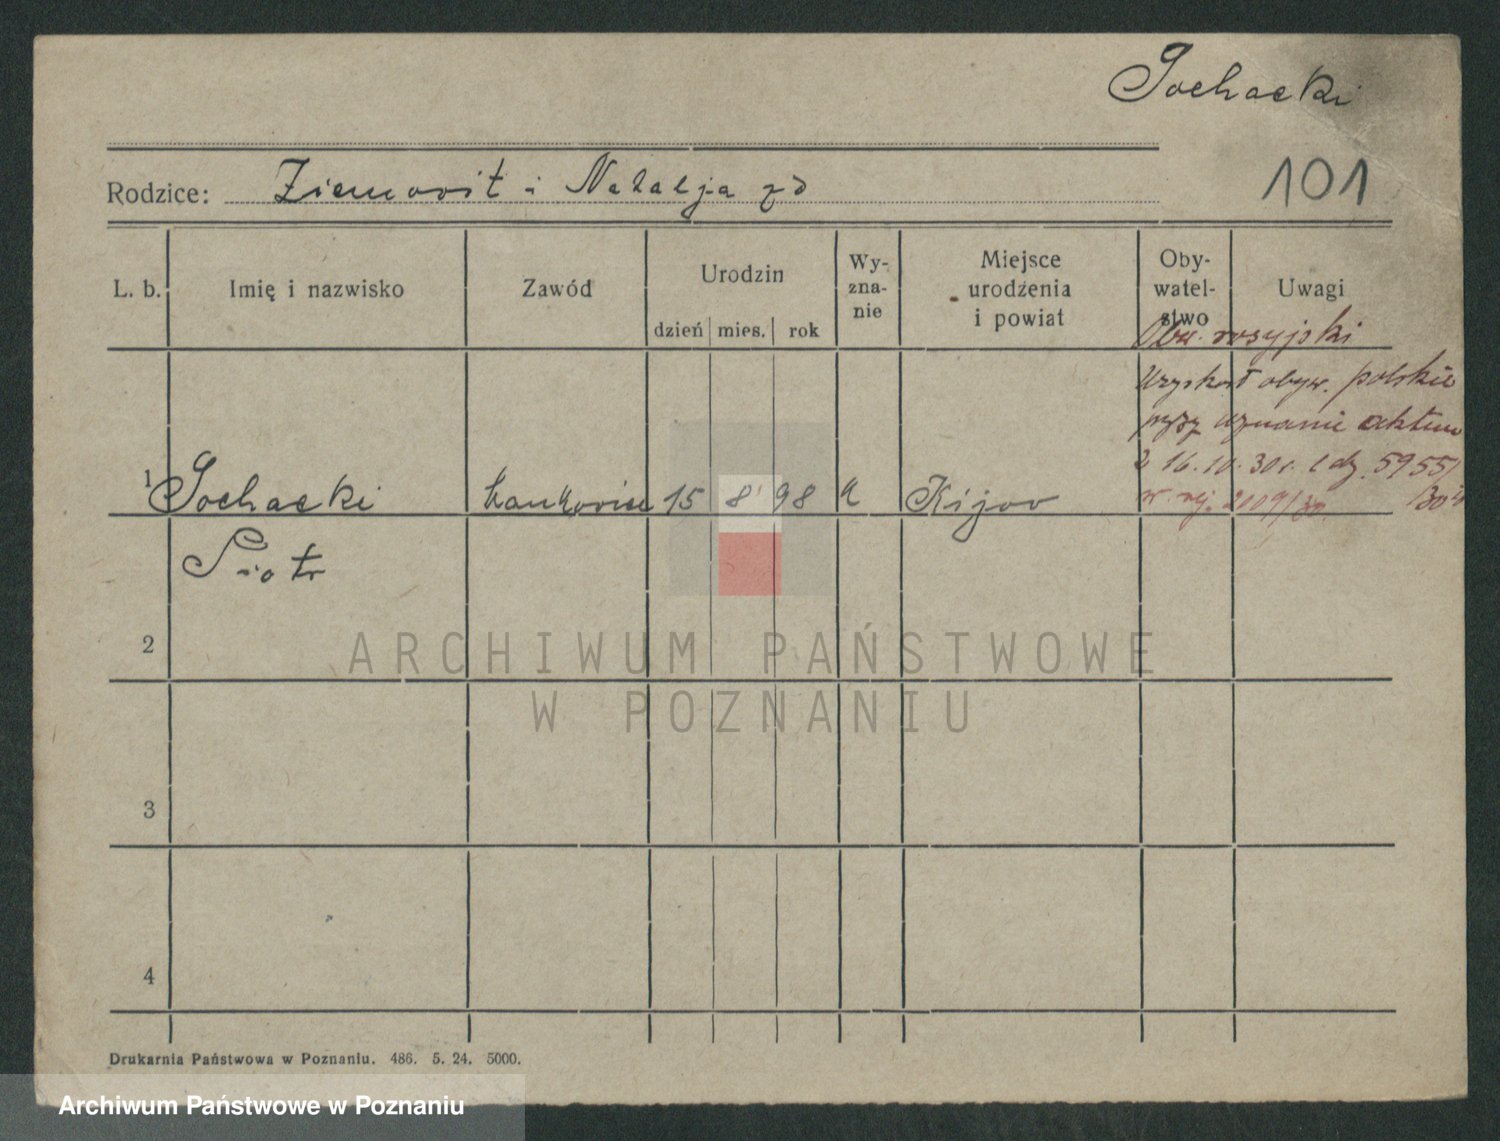 Sochacki
101
Rodzice: Ziemovit i Natalja zd
L. b.
Imię i nazwisko
Zawód
Urodzin
dzień mies. rok
Wy-
zna-
nie
Miejsce
urodzenia
i powiat
Oby-
watel-
stwo
Uwagi
Oby. rosyjski
Uzyskał obyw. polskie
przez uznanie aktem
z 16.10.30r. l dz. 5955/
/30
w. rej. 2109/30.
1 Sochacki 15 8 98 k Kijov
Piotr
2
3
4
ARCHIWUM PAŃSTWOWE
W POZNANIU
Drukarnia Państwowa w Poznaniu. 486. 5. 24. 5000.
Archiwum Państwowe w Poznaniu